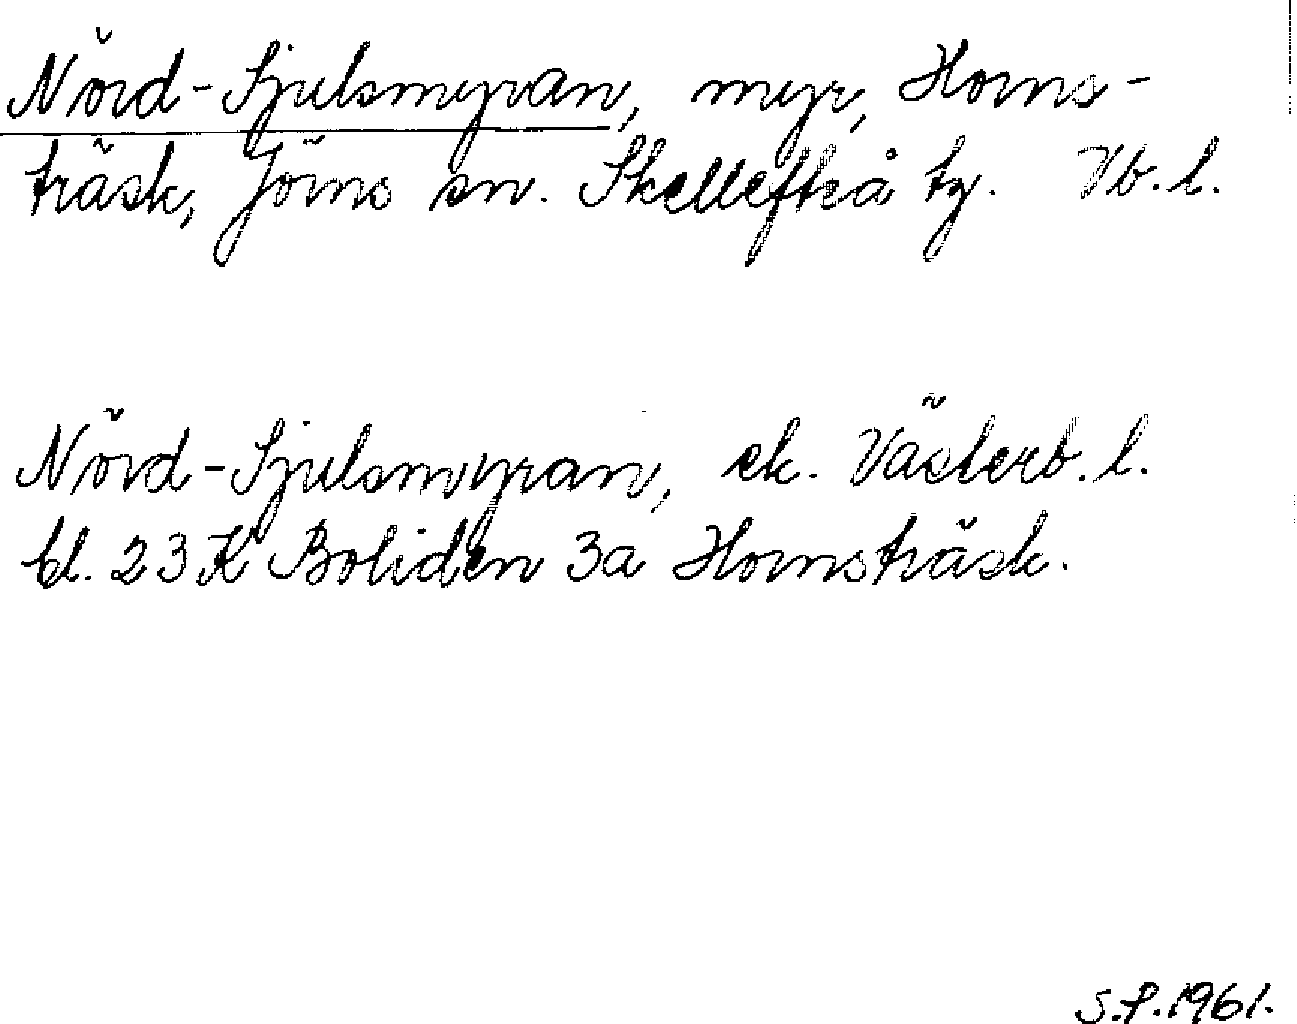 Nörd-Sjulsmyran, myr, Horns-
träsk, Jörns sn. Skellefteå tg. Vb. l.
Nörd-Sjulsmyran, ek. Västerb. l.
bl. 23 K Boliden 3a Hornsträsk.
S.P. 1961.